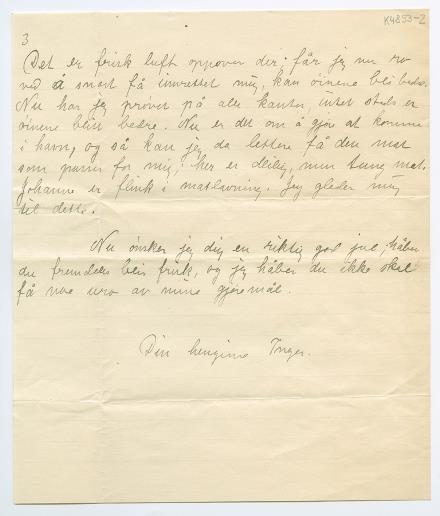 K4853-2
3
Det er frisk luft oppover der; får jeg nu ro
ved å snart få innrettet mig, kan öinene bli bedre.
Nu har jeg prövet på alle kanter, intet sted er
öinene blitt bedre. Nu er det om å gjöre at komme
i havn, og så kan jeg da lettere få den mat
som passer for mig; her er deilig, men tung mat.
Johanne er flink i matlavning. Jeg gleder mig
til dette.
Nu önsker jeg dig en riktig god jul, håber
du fremdeles blir frisk, og jeg håber du ikke skal
få noe uro av mine gjöremål.
Din hengivne Inger.